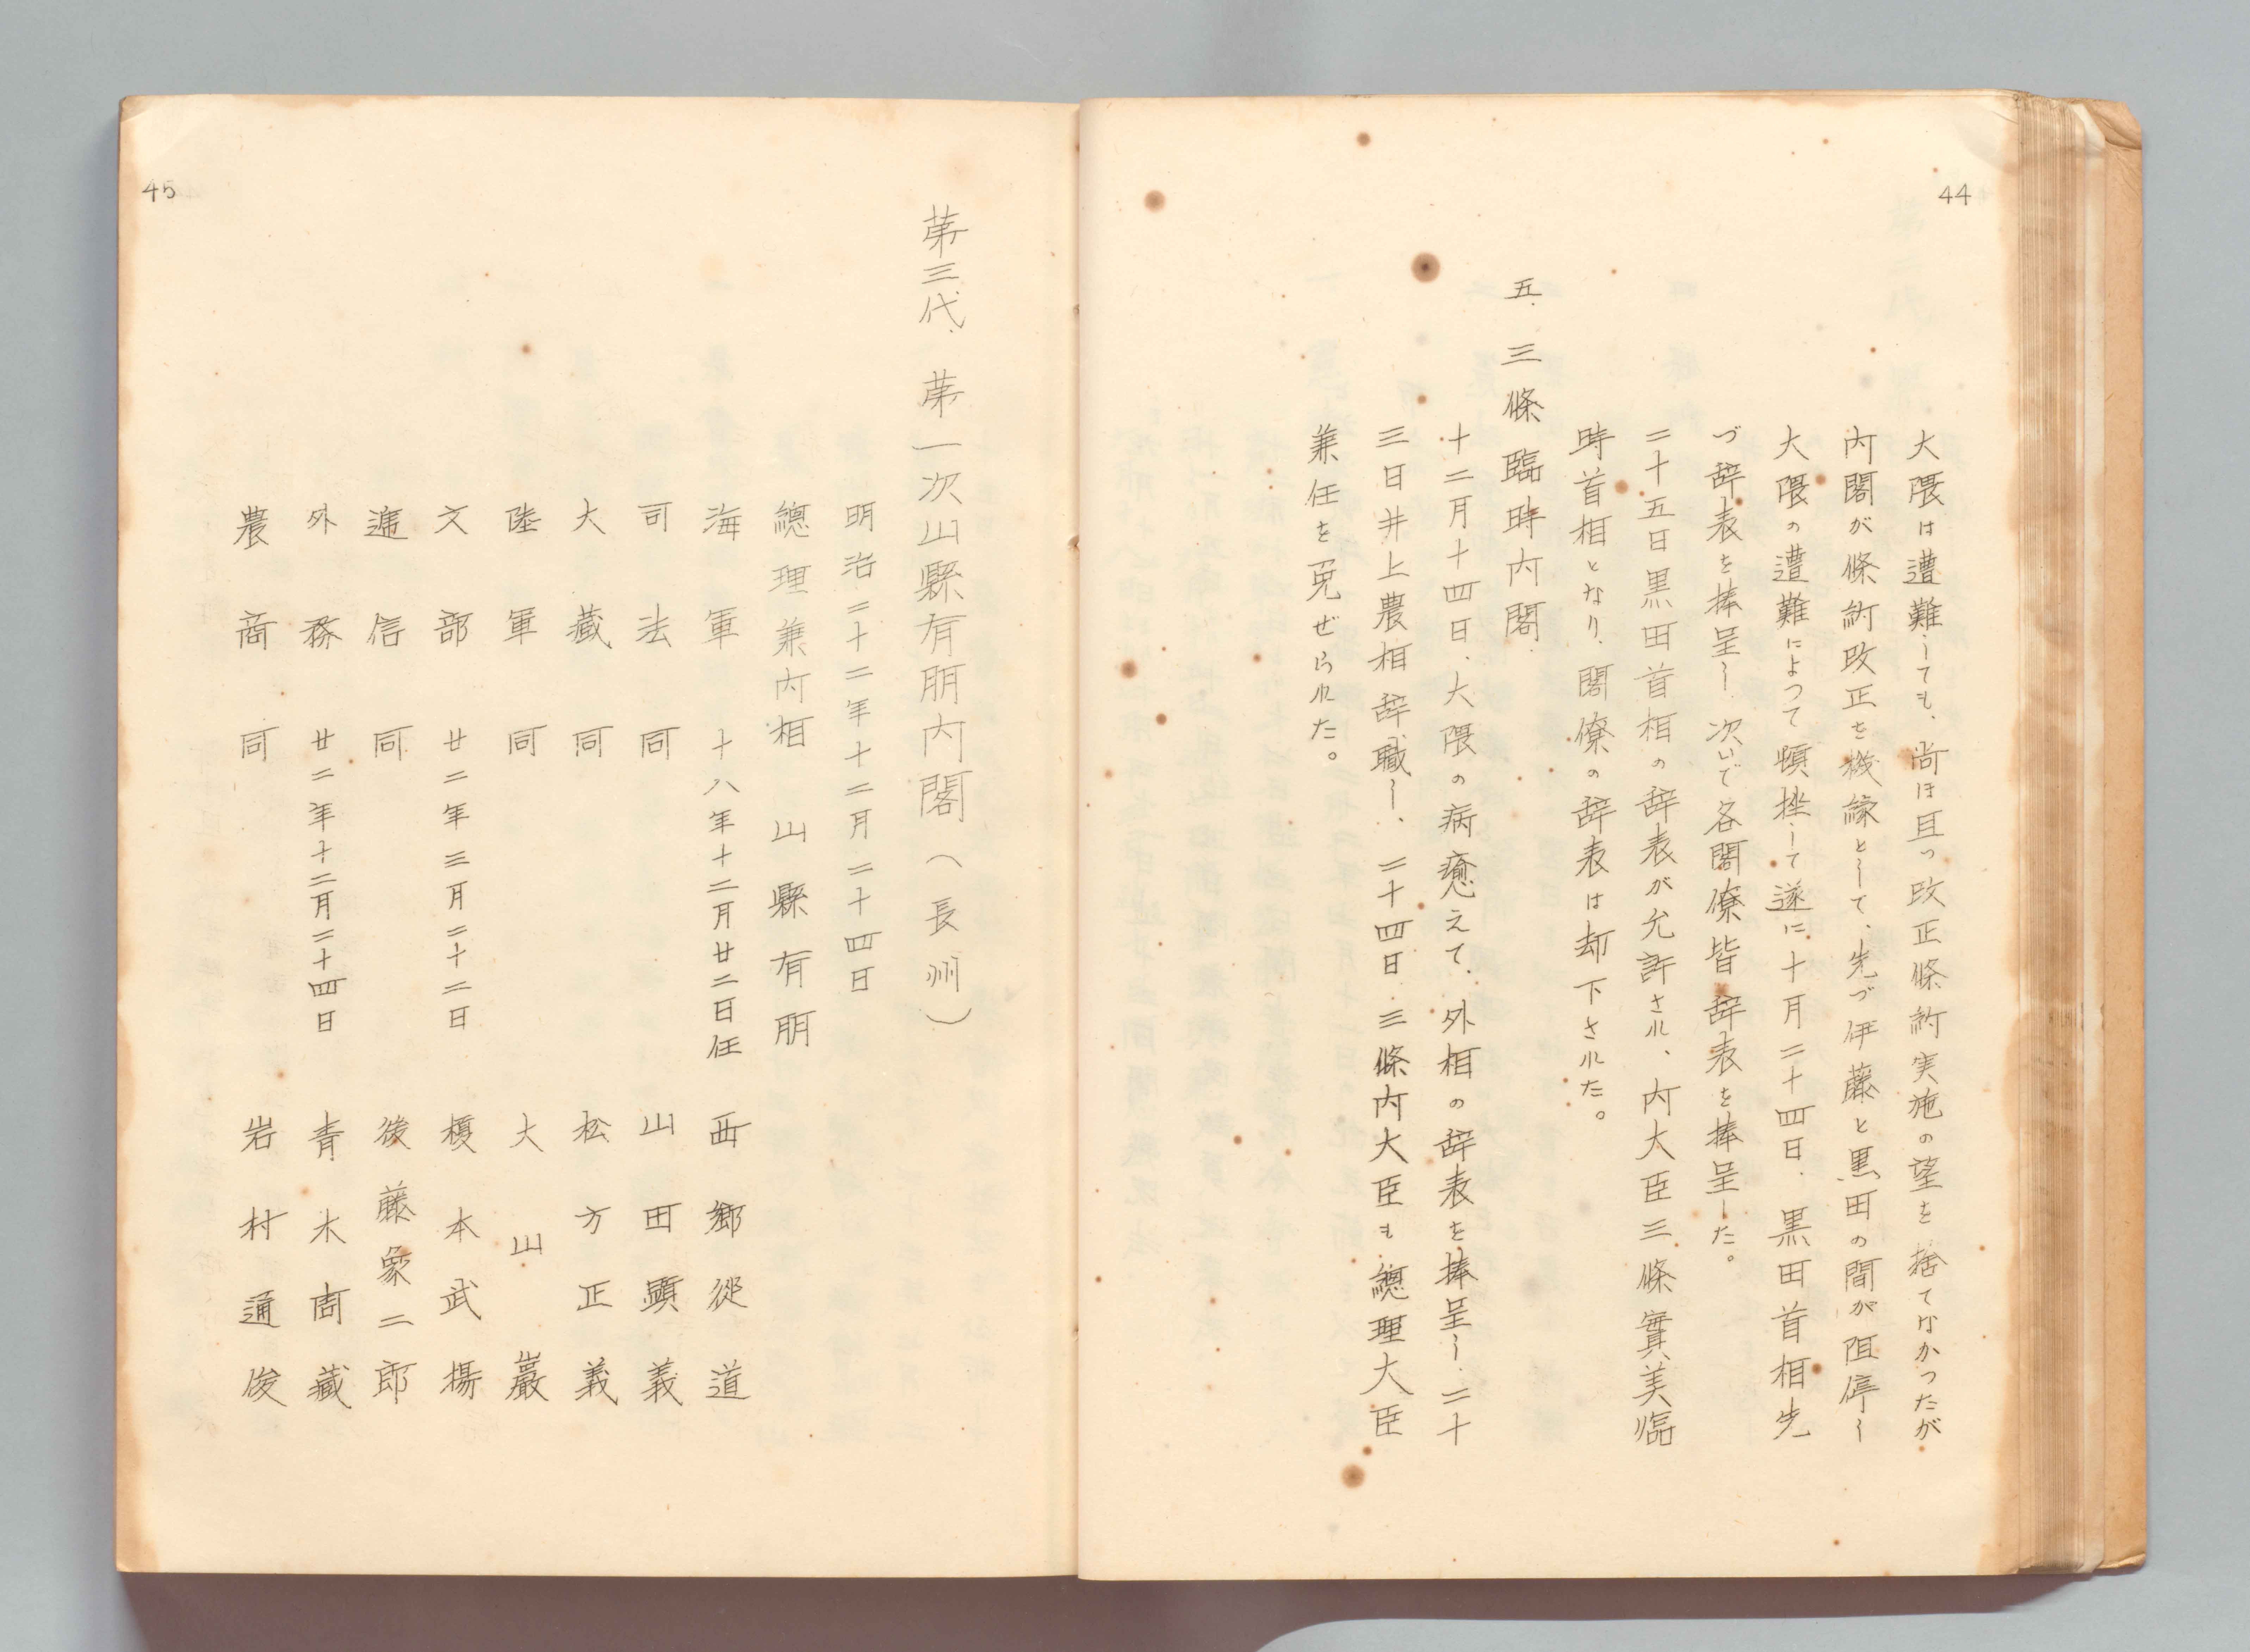 44
大隈は遭難しても、尚ほ且つ改正條約実施の望を捨てなかつたが
内閣が條約改正を機縁として、先づ伊藤と黒田の間が阻停し
大隈の遭難によつて頓挫して遂に十月二十四日、黒田首相先
づ辞表を捧呈し、次いで各閣僚皆辞表を捧呈した。
二十五日黒田首相の辞表が允許され、内大臣三條實美臨
時首相となり、閣僚の辞表は却下された。
五、三條臨時内閣
十二月十四日、大隈の病癒えて、外相の辞表を捧呈し、二十
三日井上農相辞職し、二十四日三條内大臣も總理大臣
兼任を免ぜられた。
45
第三代、第一次山縣有朋内閣(長州)
明治二十二年十二月二十四日
總理兼内相 山縣有朋
海軍 十八年十二月廿二日任 西郷從道
司法 同 山田顕義
大藏 同 松方正義
陸軍 同 大山巖
文部 廿二年三月二十二日 榎本武揚
逓信 同 後藤象二郎
外務 廿二年十二月二十四日 青木周藏
農商 同 岩村通俊